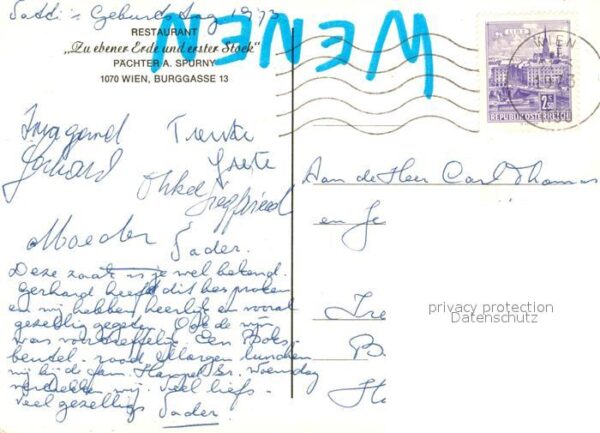 Geburtstag 1973
WENEN
RESTAURANT
„Zu ebener Erde und erster Stock“
PÄCHTER A. SPURNY
1070 WIEN, BURGGASSE 13
LINZ
WIEN
2S
REPUBLIK ÖSTERREICH
Irmgard
Gerhard
Grete
Onkel Siegfried
Moeder Vader.
Deze zaak is je wel bekend.
Gerhard heeft dit besproken
en wij hebben heerlijk en vooral
gezellig gegeten. Ook de wijn
was voortreffelijk. Een Boks-
beutel. rood Morgen lunchen
wij bij de fam. Woensdag
vertrekken wij. Veel liefs.
Veel gezelligs Vader.
Aan de Heer Carl Thomas
en Je
Ire
B
H
privacy protection
Datenschutz